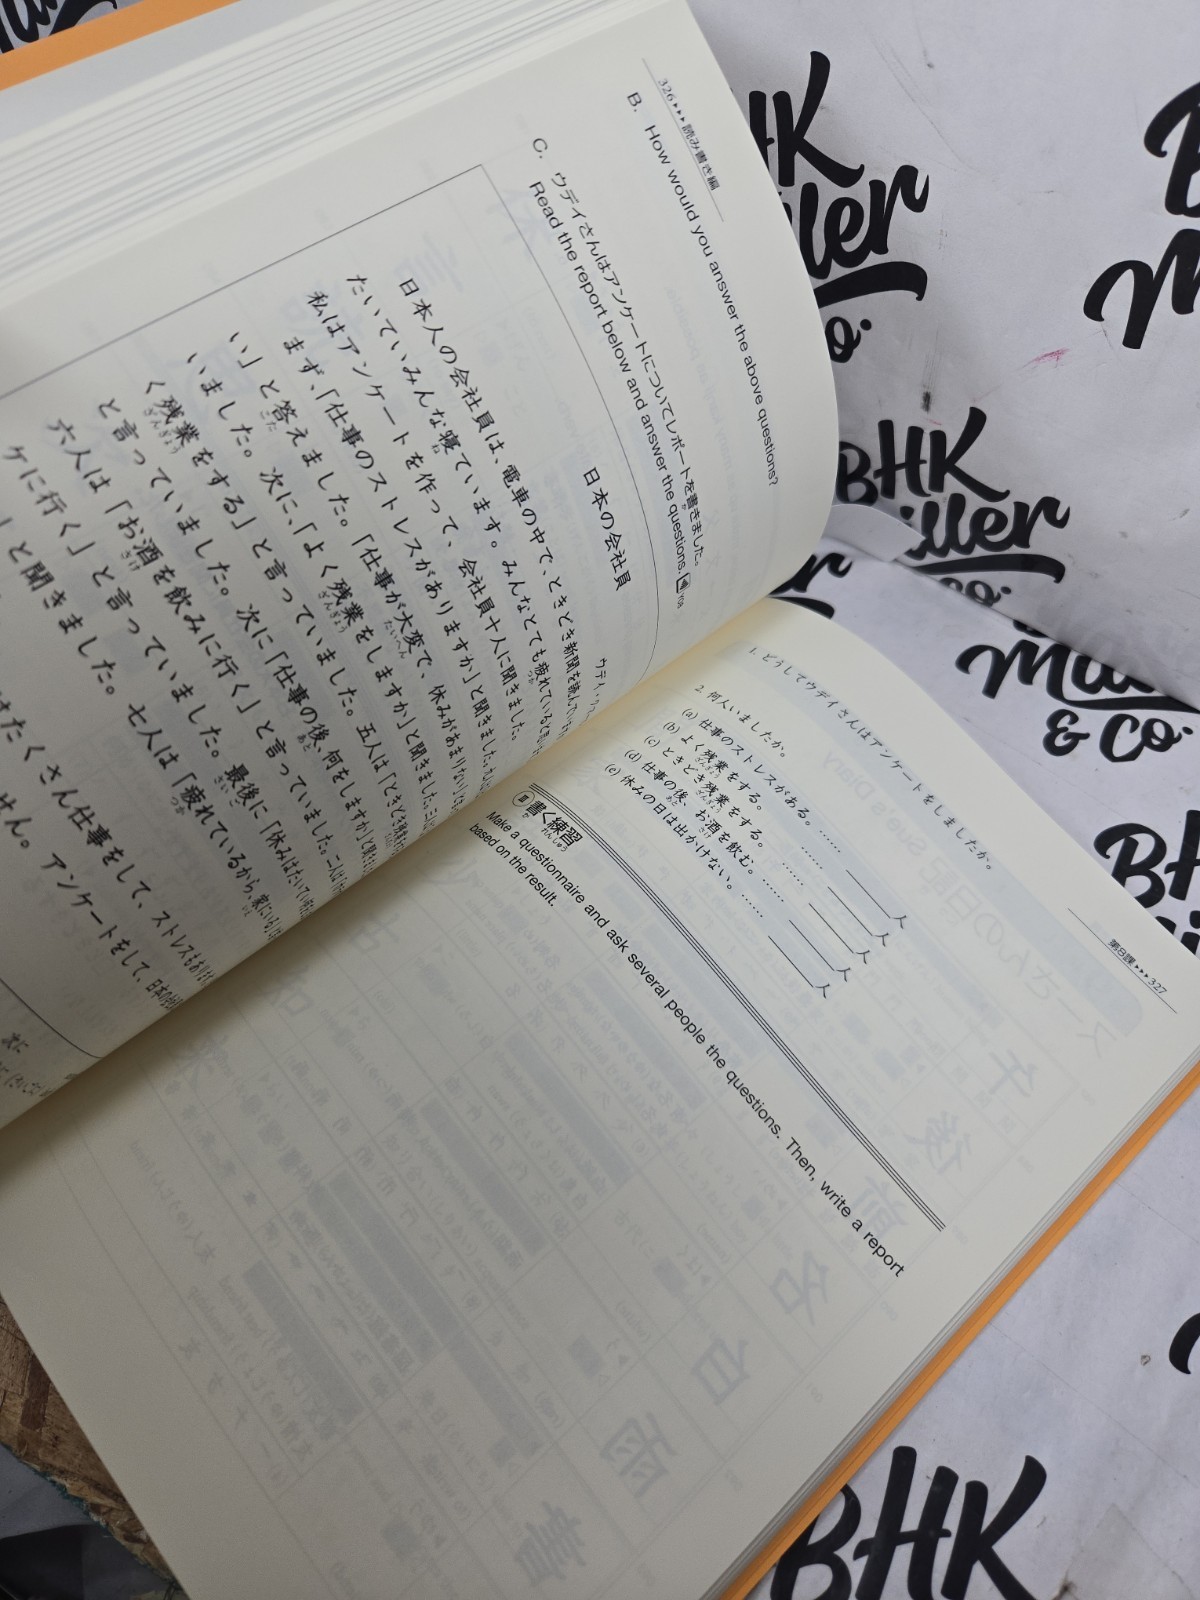 326▸▸▸読み書き編
B. How would you answer the above questions?
C. ウデイさんはアンケートについてレポートを書きました。
Read the report below and answer the questions.
日本の会社員
ウデイ・クマール
日本人の会社員は、電車の中で、ときどき新聞を読んでいますが、
たいていみんな寝ています。みんなとても疲れていると思います。
私はアンケートを作って、会社員十人に聞きました。
まず、「仕事のストレスがありますか」と聞きました。
い」と答えました。「仕事が大変で、休みがあまりない」と
いました。次に、「よく残業をしますか」と聞きました。三人は
く残業をする」と言っていました。五人は「ときどき残業
と言っていました。次に「仕事の後、何をしますか」と聞きました。二人は
六人は「お酒を飲みに行く」と言っていました。最後に「休みはたいてい何を
ケに行く」と言っていました。
と聞きました。七人は「疲れているから、家にいる」と
はたくさん仕事をして、ストレスもあります
せん。アンケートをして、日本の会社
第8課▸▸▸327
1. どうしてウデイさんはアンケートをしましたか。
2. 何人いましたか。
(a) 仕事のストレスがある。 …… ______人
(b) よく残業をする。 …… ______人
(c) ときどき残業をする。 …… ______人
(d) 仕事の後、お酒を飲む。 …… ______人
(e) 休みの日は出かけない。 …… ______人
Ⅲ 書く練習
Make a questionnaire and ask several people the questions. Then, write a report
based on the result.
BHK
Miller
& Co.
BHK
Miller
& Co.
Miller
& Co.
BHK